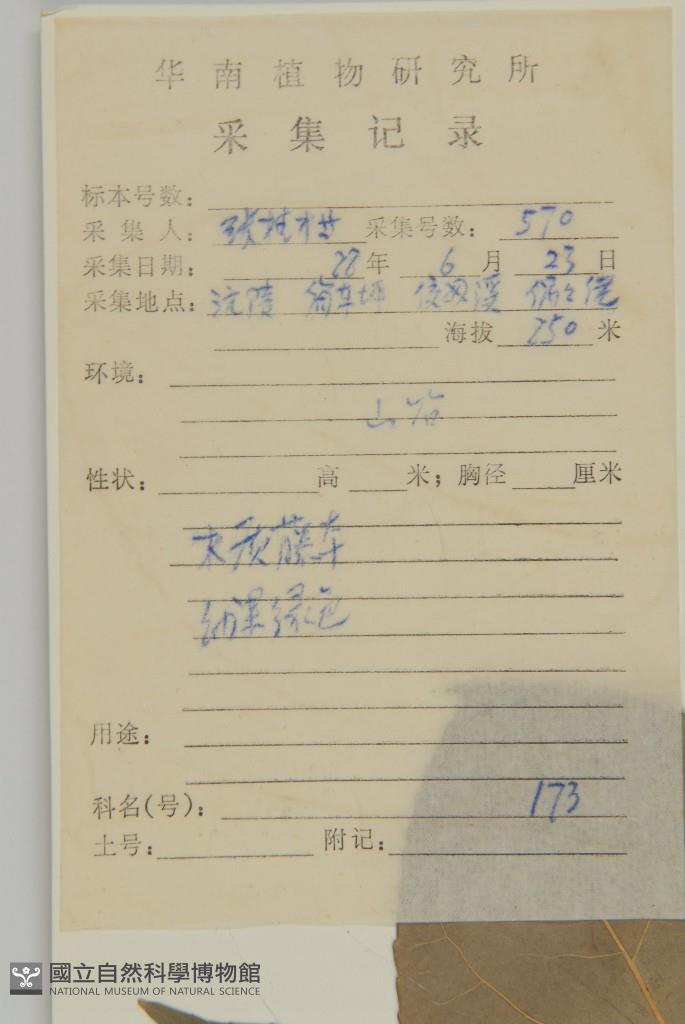 华南植物研究所
采集记录
标本号数：
采集人：张桂才 采集号数：570
采集日期：88年6月23日
采集地点：沅陵 筒车坪
海拔 250 米
环境：
山谷
性状： 高 米；胸径 厘米
木质藤本
幼果绿色
用途：
科名(号)： 173
土号： 附记：
國立自然科學博物館
NATIONAL MUSEUM OF NATURAL SCIENCE